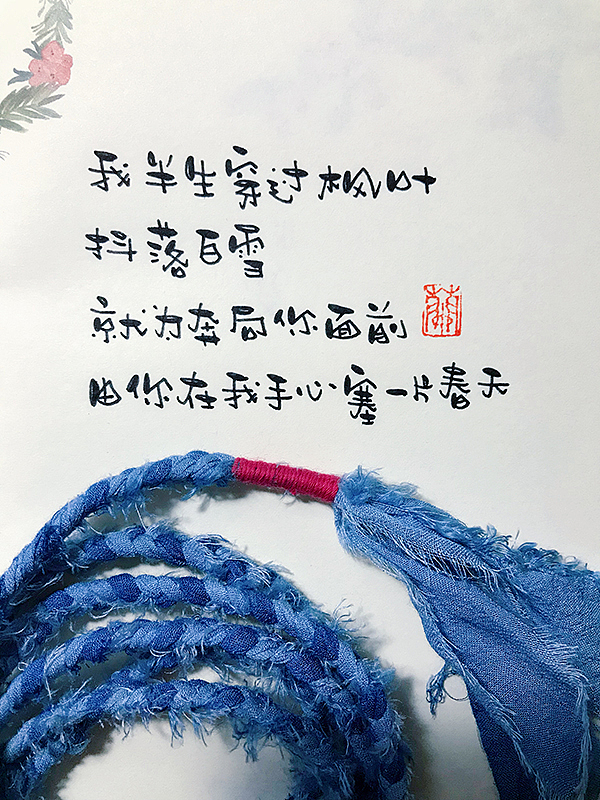 我半生穿过枫叶
抖落白雪
就为奔向你面前
由你在我手心塞一片春天